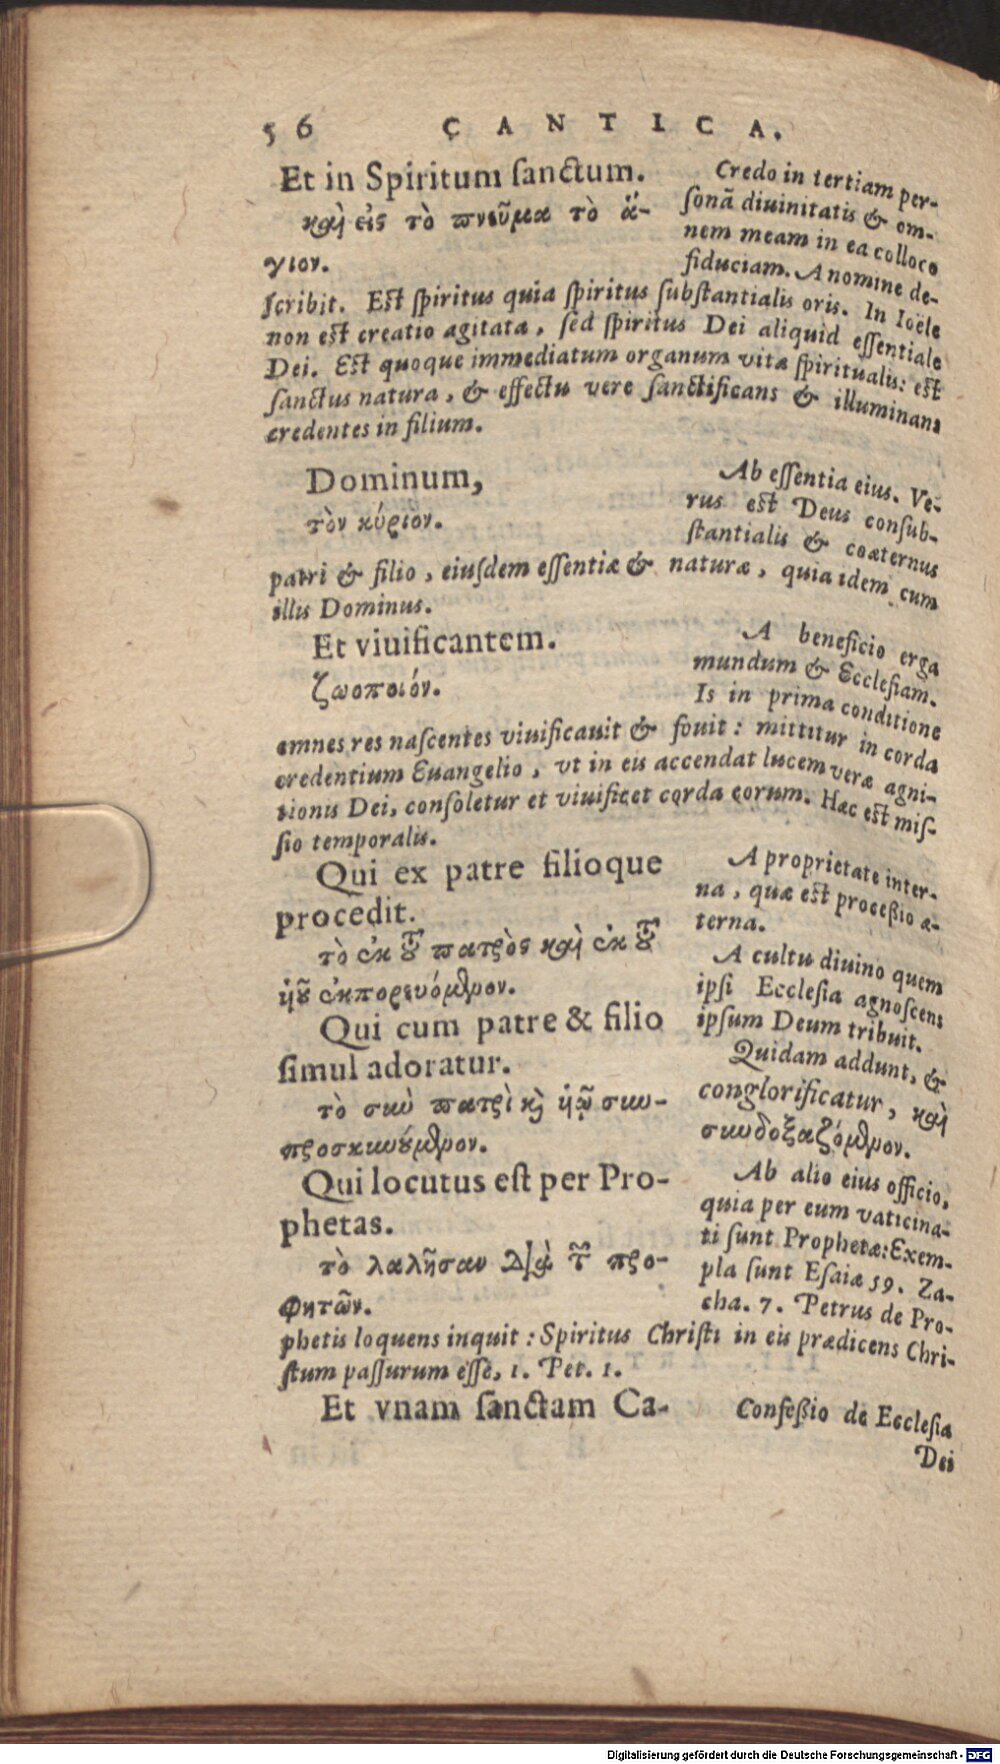 56 CANTICA.
Et in Spiritum ſanctum.
καὶ εἰς τὸ πνεῦμα τὸ ἅ-
γιον.
Credo in tertiam per-
ſonā diuinitatis & om-
nem meam in ea colloco
fiduciam. A nomine de-
ſcribit. Eſt ſpiritus quia ſpiritus ſubſtantialis oris. In Ioële
non eſt creatio agitata, ſed ſpiritus Dei aliquid eſſentiale
Dei. Eſt quoque immediatum organum vitæ ſpiritualis: eſt
ſanctus natura, & effectu vere ſanctificans & illuminans
credentes in filium.
Dominum,
τὸν κύριον.
Ab eſſentia eius. Ve-
rus eſt Deus conſub-
ſtantialis & coæternus
patri & filio, eiuſdem eſſentiæ & naturæ, quia idem cum
illis Dominus.
Et viuificantem.
ζωοποιόν.
A beneficio erga
mundum & Eccleſiam.
Is in prima conditione
omnes res naſcentes viuificauit & fouit: mittitur in corda
credentium Euangelio, vt in eis accendat lucem veræ agni-
tionis Dei, conſoletur et viuificet corda eorum. Hæc eſt miſ-
ſio temporalis.
Qui ex patre filioque
procedit.
τὸ ἐκ τοῦ πατρὸς καὶ ἐκ τοῦ
ὑοῦ ἐκπορευόμενον.
A proprietate inter-
na, quæ eſt proceßio æ-
terna.
Qui cum patre & filio
ſimul adoratur.
τὸ σὺν πατρὶ καὶ ὑῷ συν-
προσκυνούμενον.
A cultu diuino quem
ipſi Eccleſia agnoſcens
ipſum Deum tribuit.
Quidam addunt, &
conglorificatur, καὶ
συνδοξαζόμενον.
Qui locutus eſt per Pro-
phetas.
τὸ λαλῆσαν διὰ τῶν προ-
φητῶν.
Ab alio eius officio,
quia per eum vaticina-
ti ſunt Prophetæ: Exem-
pla ſunt Eſaiæ 59. Za-
cha. 7. Petrus de Pro-
phetis loquens inquit: Spiritus Chriſti in eis prædicens Chri-
ſtum paſſurum eſſe, 1. Pet. 1.
Et vnam ſanctam Ca-
Confeßio de Eccleſia
Dei
Digitalisierung gefördert durch die Deutsche Forschungsgemeinschaft - DFG